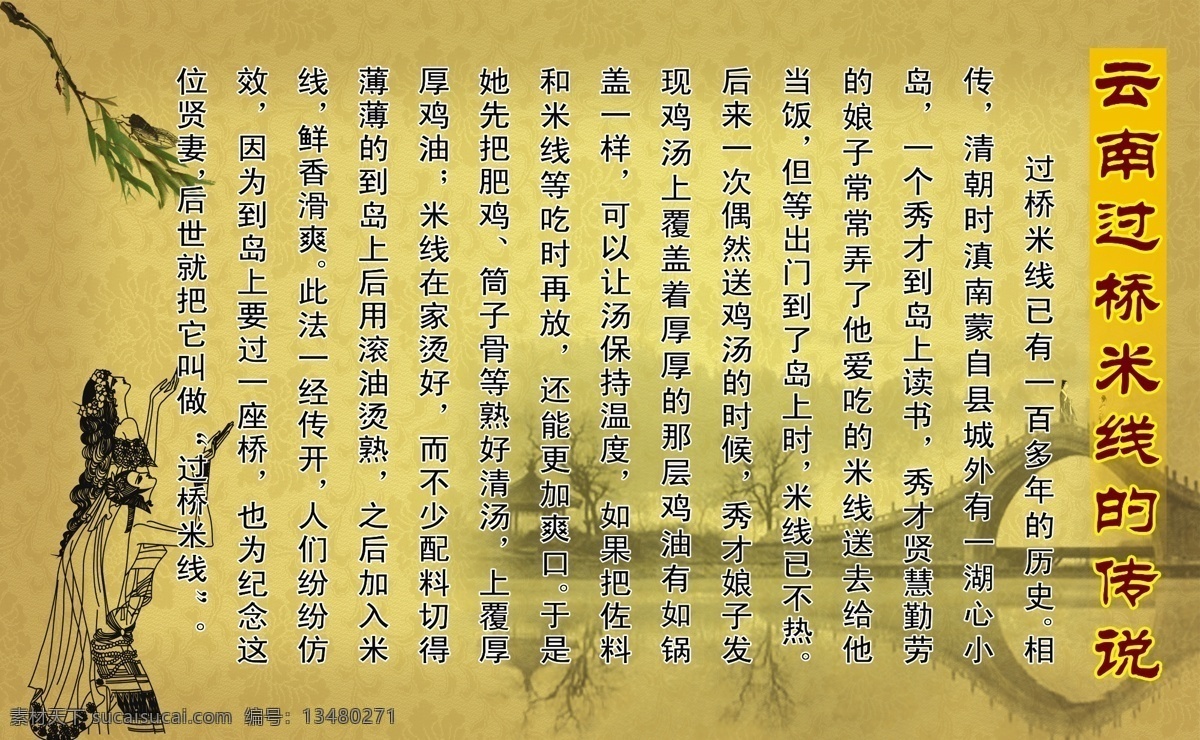 云南过桥米线的传说
过桥米线已有一百多年的历史。相
传，清朝时滇南蒙自县城外有一湖心小
岛，一个秀才到岛上读书，秀才贤慧勤劳
的娘子常常弄了他爱吃的米线送去给他
当饭，但等出门到了岛上时，米线已不热。
后来一次偶然送鸡汤的时候，秀才娘子发
现鸡汤上覆盖着厚厚的那层鸡油有如锅
盖一样，可以让汤保持温度，如果把佐料
和米线等吃时再放，还能更加爽口。于是
她先把肥鸡、筒子骨等熟好清汤，上覆厚
厚鸡油；米线在家烫好，而不少配料切得
薄薄的到岛上后用滚油烫熟，之后加入米
线，鲜香滑爽。此法一经传开，人们纷纷仿
效，因为到岛上要过一座桥，也为纪念这
位贤妻，后世就把它叫做“过桥米线”。
素材天下 sucaisucai.com 编号：13480271